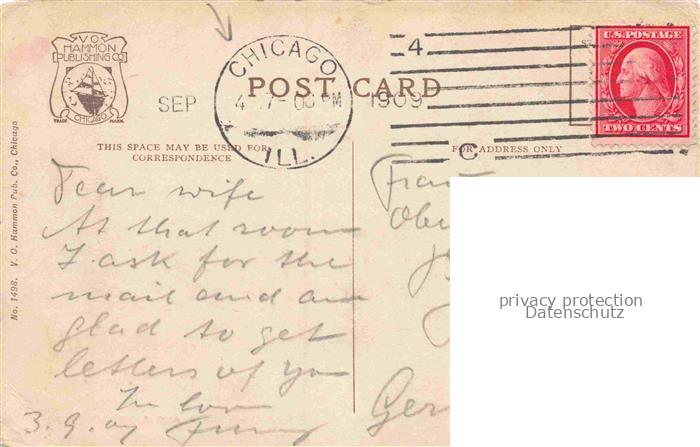 V.O.
HAMMON
PUBLISHING CO
TRADE MARK
CHICAGO
No. 1498. V. O. Hammon Pub. Co., Chicago
CHICAGO
ILL.
SEP 4 7-00 PM 1909
4
C
POST CARD
U.S. POSTAGE
TWO CENTS
THIS SPACE MAY BE USED FOR
CORRESPONDENCE
FOR ADDRESS ONLY
Dear wife
At that room
I ask for the
mail and am
glad to get
letters of you
In love
3.9.09
Frau
Obe
Ger
privacy protection
Datenschutz